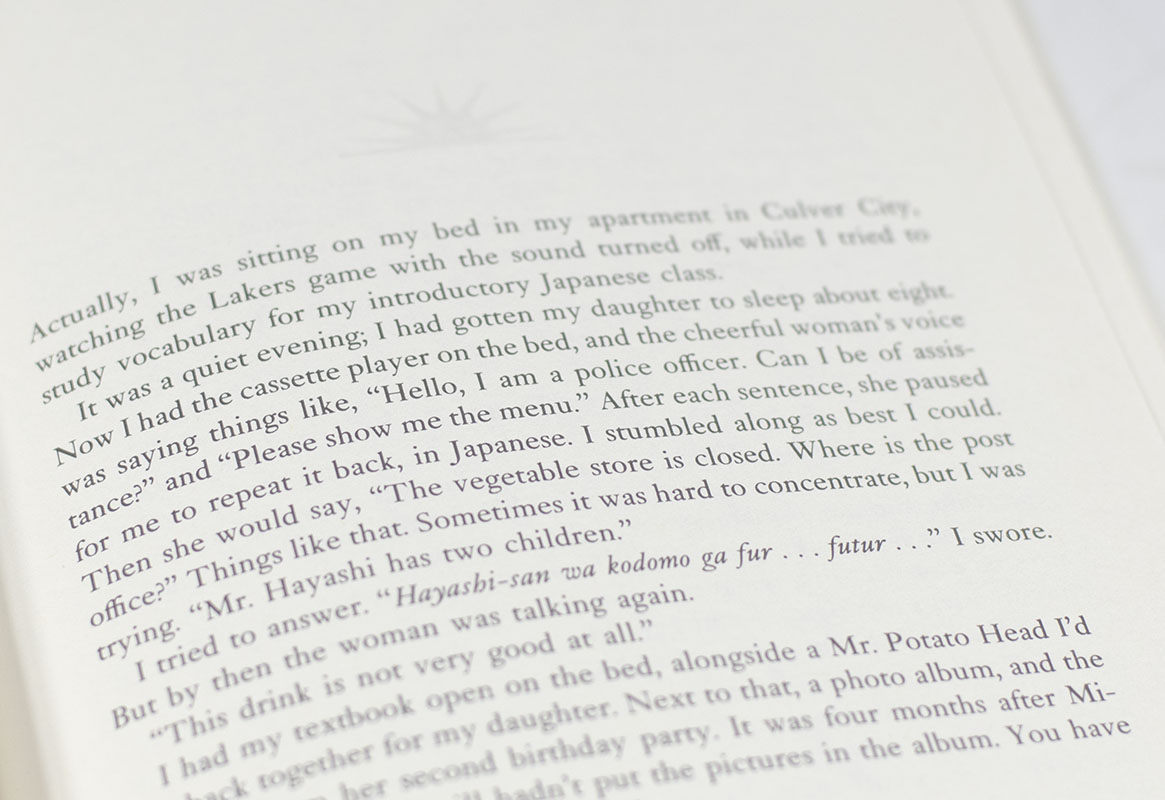 Actually, I was sitting on my bed in my apartment in Culver City,
watching the Lakers game with the sound turned off, while I tried to
study vocabulary for my introductory Japanese class.
It was a quiet evening; I had gotten my daughter to sleep about eight.
Now I had the cassette player on the bed, and the cheerful woman's voice
was saying things like, “Hello, I am a police officer. Can I be of assis-
tance?” and “Please show me the menu.” After each sentence, she paused
for me to repeat it back, in Japanese. I stumbled along as best I could.
Then she would say, “The vegetable store is closed. Where is the post
office?” Things like that. Sometimes it was hard to concentrate, but I was
trying. “Mr. Hayashi has two children.”
I tried to answer. “Hayashi-san wa kodomo ga fur . . . futur . . .” I swore.
But by then the woman was talking again.
“This drink is not very good at all.”
I had my textbook open on the bed, alongside a Mr. Potato Head I'd
back together for my daughter. Next to that, a photo album, and the
her second birthday party. It was four months after Mi-
hadn't put the pictures in the album. You have